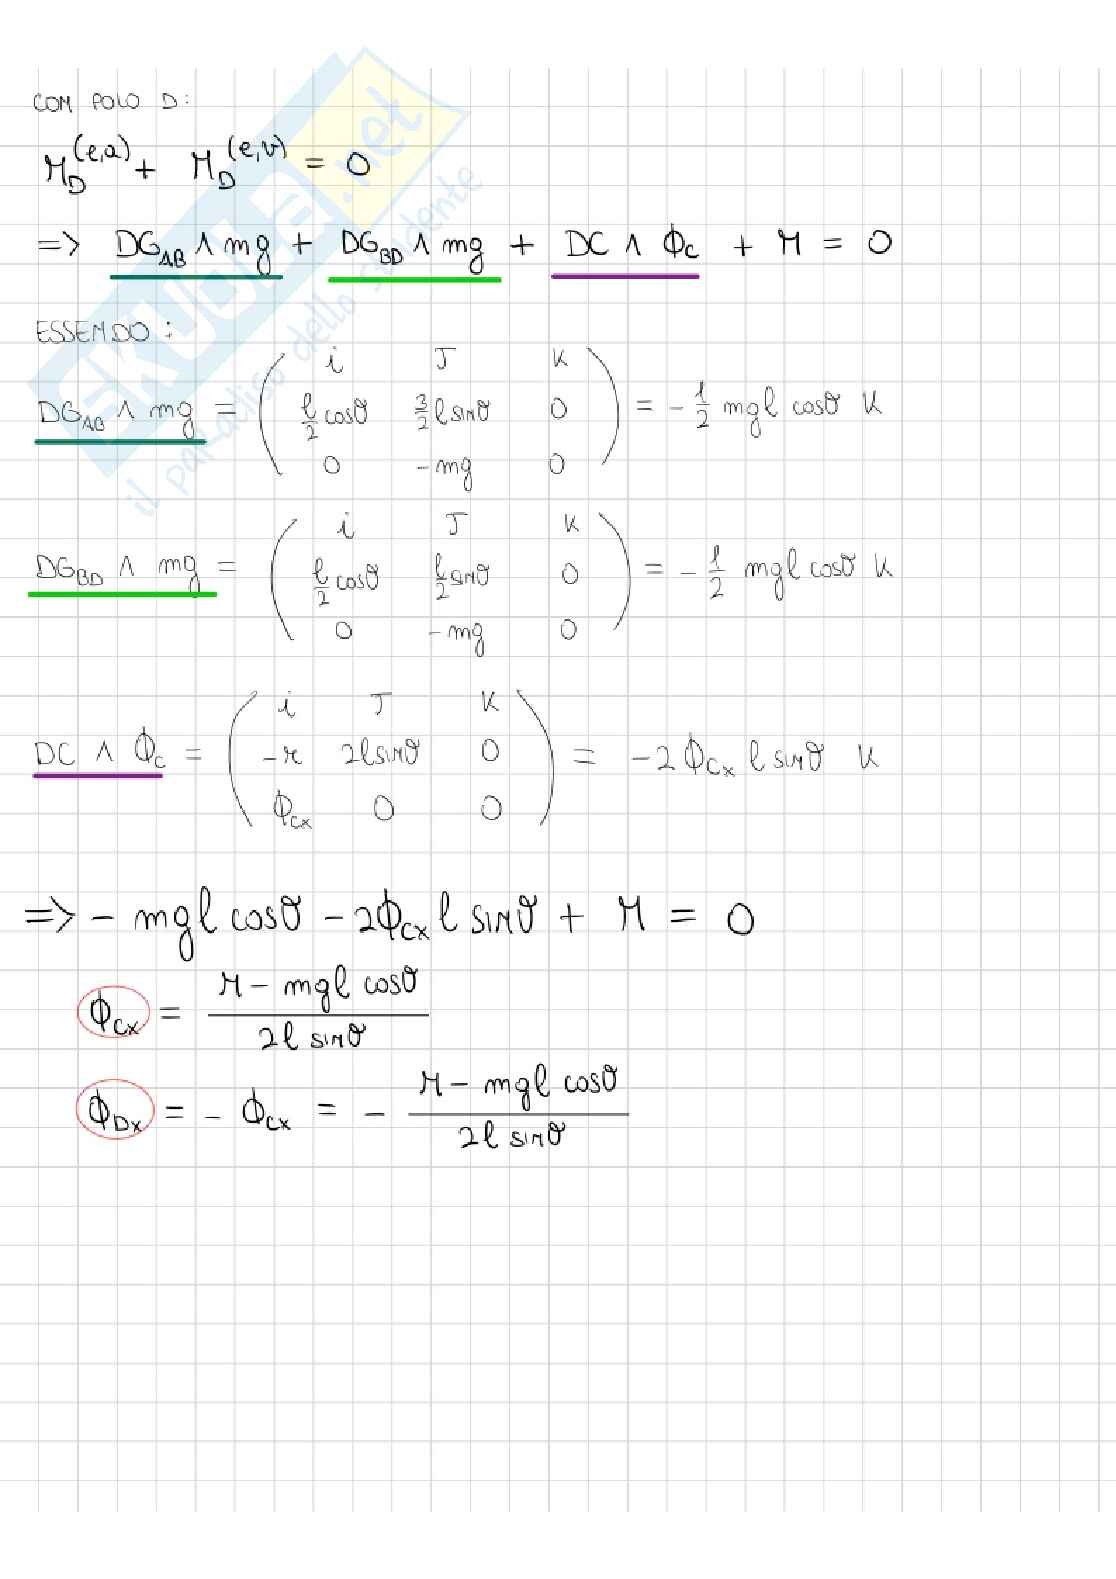 CON POLO D:
M_D^(e,a) + M_D^(e,v) = 0
=> DG_AB ∧ mg + DG_BD ∧ mg + DC ∧ Φ_C + M = 0
ESSENDO:
DG_AB ∧ mg = ( i J K ; l/2 cosθ 3/2 l sinθ 0 ; 0 -mg 0 ) = - 1/2 mgl cosθ K
DG_BD ∧ mg = ( i J K ; l/2 cosθ l/2 sinθ 0 ; 0 -mg 0 ) = - 1/2 mgl cosθ K
DC ∧ Φ_C = ( i J K ; -r 2l sinθ 0 ; Φ_Cx 0 0 ) = -2Φ_Cx l sinθ K
=> - mgl cosθ - 2Φ_Cx l sinθ + M = 0
Φ_Cx = (M - mgl cosθ) / (2l sinθ)
Φ_Dx = - Φ_Cx = - (M - mgl cosθ) / (2l sinθ)
SKUOLA.net
il paradiso dello studente